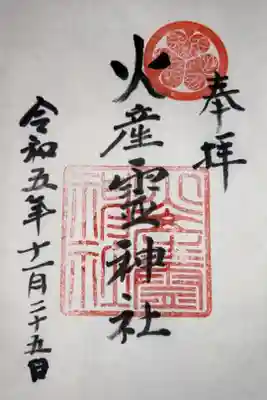 奉拝
火産霊神社
令和五年十一月二十五日